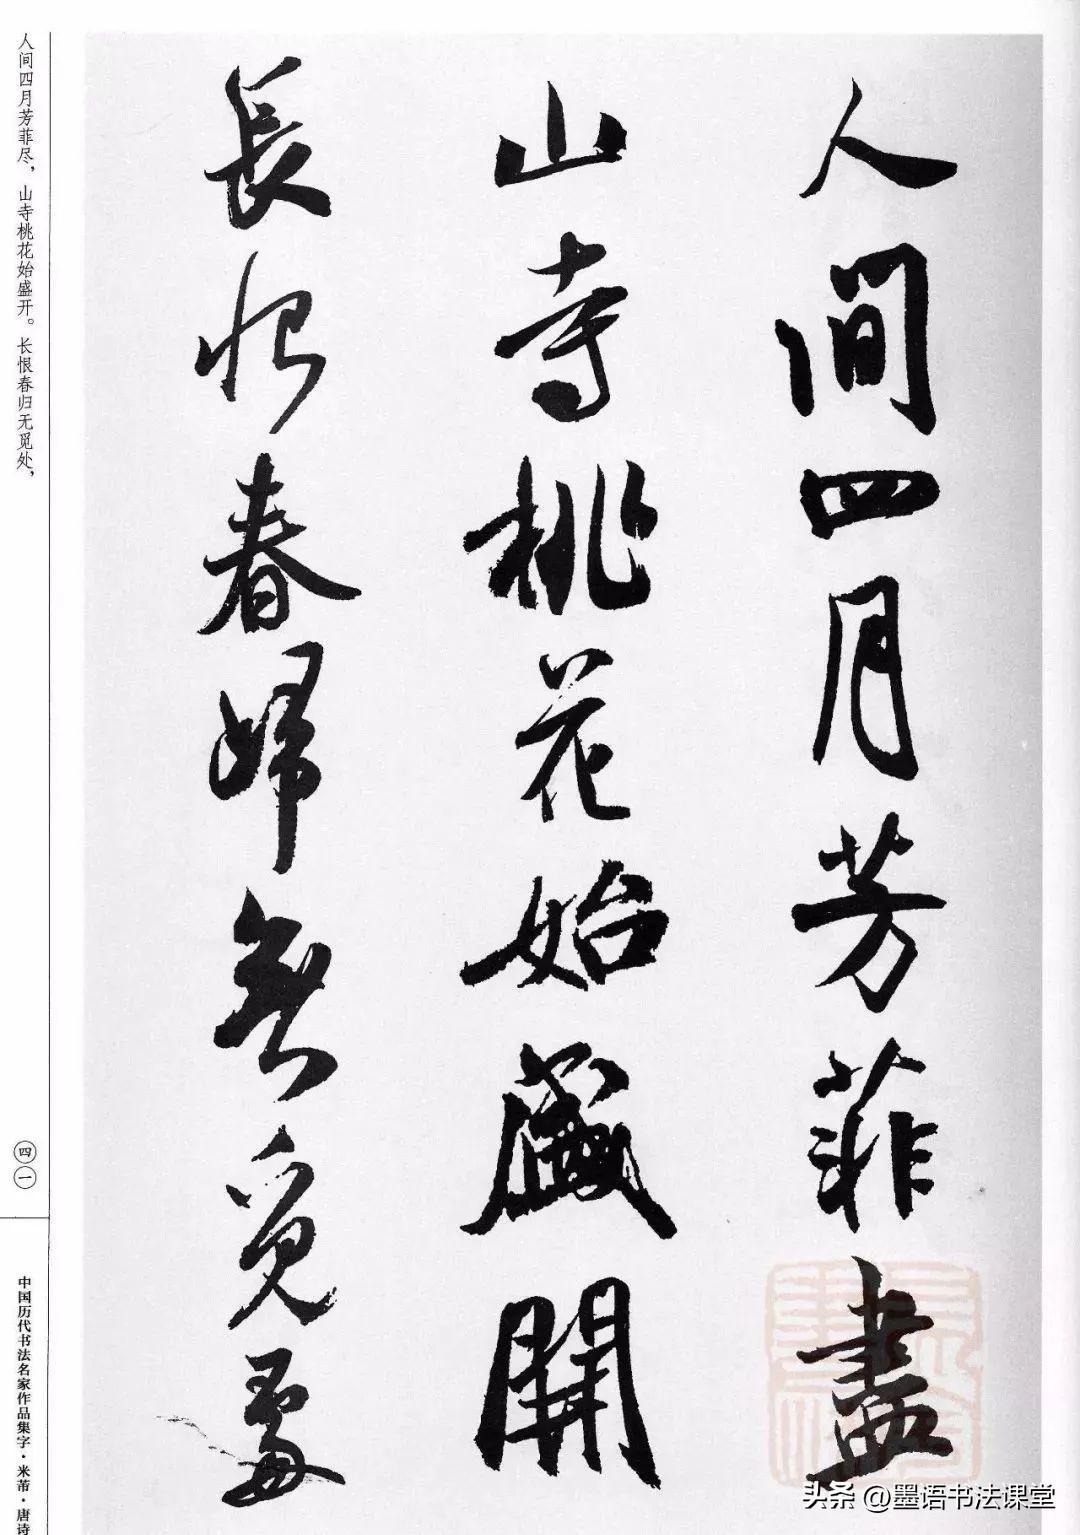 人間四月芳菲盡
山寺桃花始盛開
長恨春歸無覓處
人间四月芳菲尽，山寺桃花始盛开。长恨春归无觅处，
四一
中国历代书法名家作品集字·米芾·唐诗
头条 @墨语书法课堂